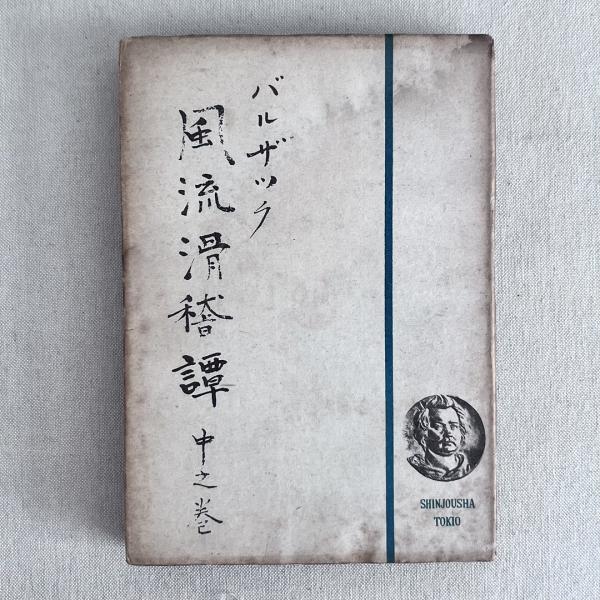 バルザツク
風流滑稽譚
中之巻
SHINJOUSHA
TOKIO